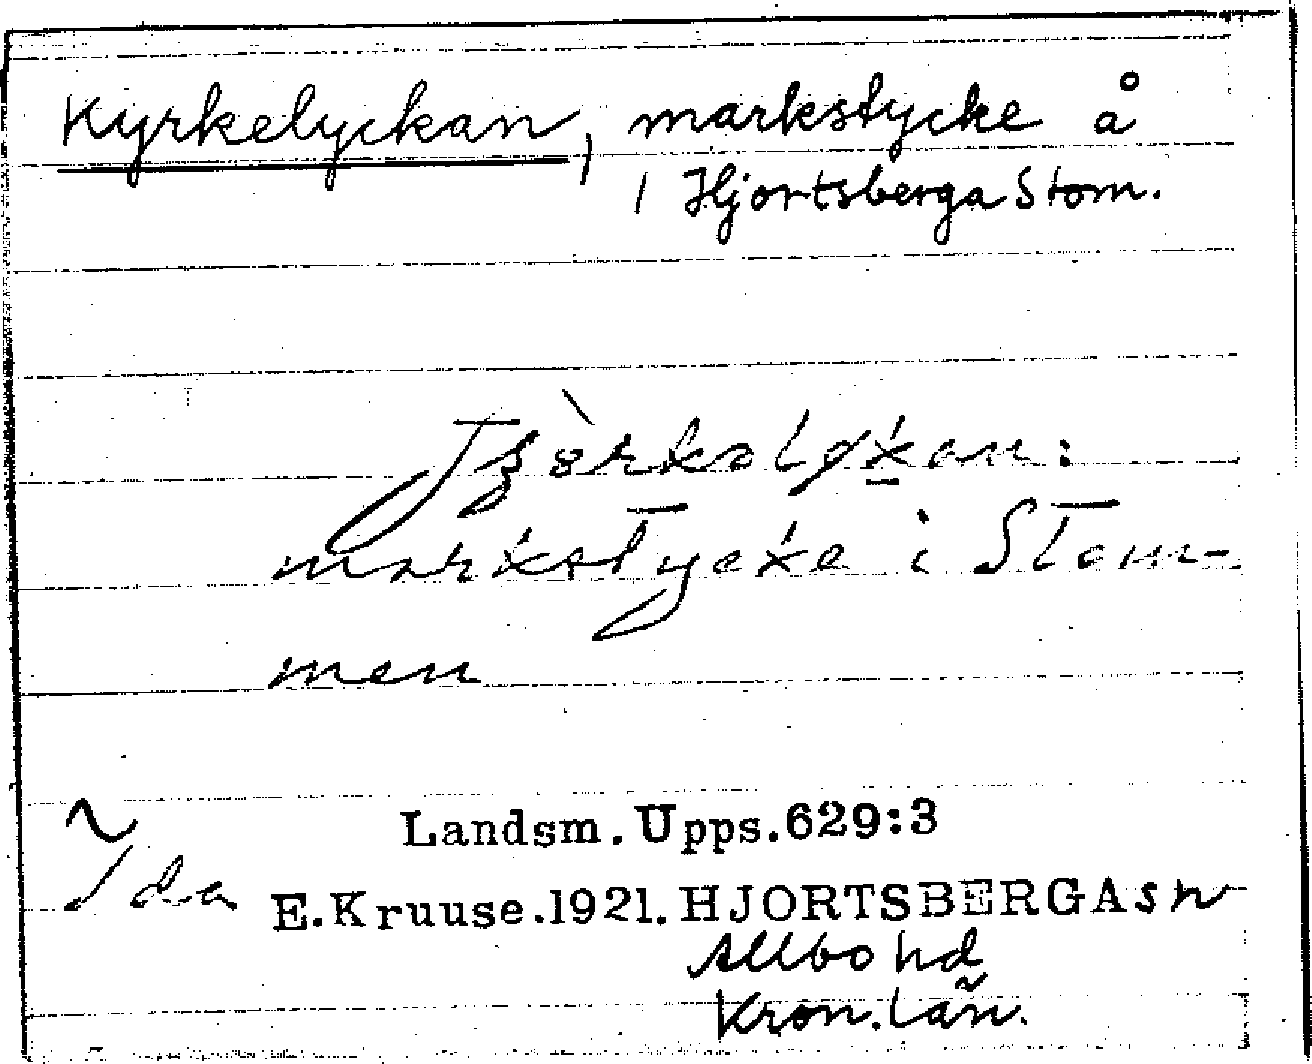 Kyrkelyckan, markstycke å
i Hjortsberga Stom.
markstycke i Stom-
men
Landsm. Upps. 629:3
Ida E. Kruuse. 1921. HJORTSBERGA sn
Allbo hd
Kron. län.